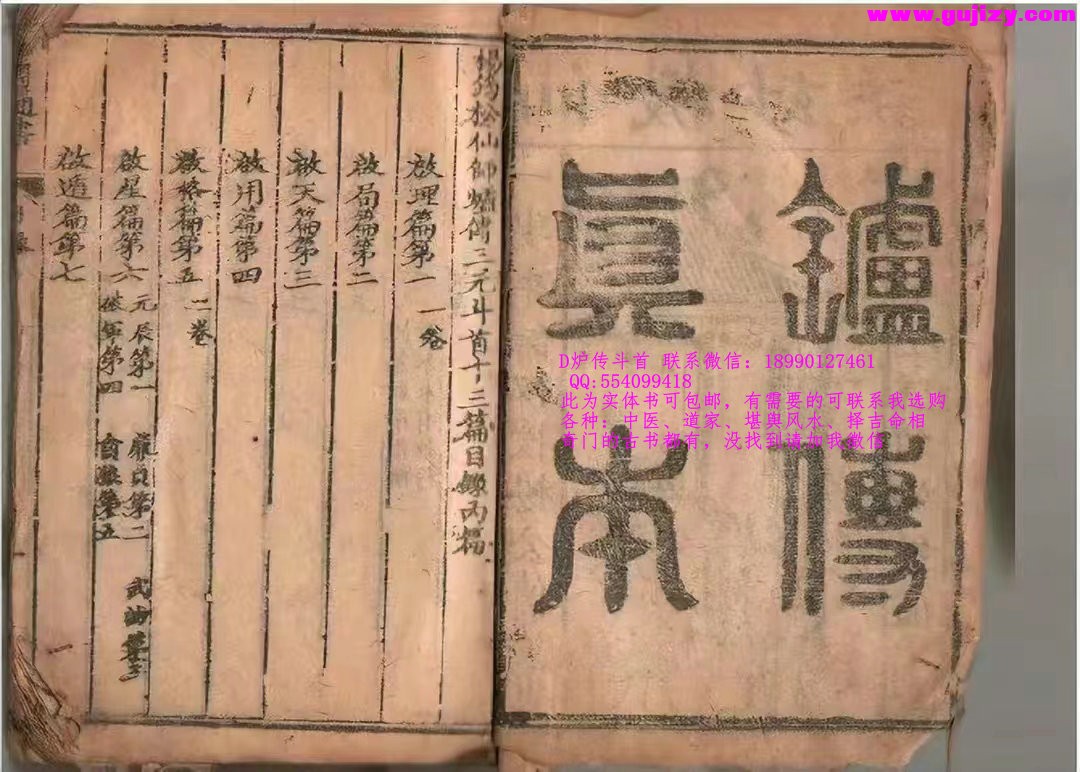 www.gujizy.com
鑪傳
真本
D炉传斗首 联系微信：18990127461
QQ:554099418
此为实体书可包邮，有需要的可联系我选购
各种：中医、道家、堪舆风水、择吉命相
奇门的古书都有，没找到请加我微信
楊筠松仙師爐傳三元斗首十三篇目錄內篇
啟理篇第一 一卷
啟局篇第二
啟天篇第三
啟用篇第四
啟格篇第五 二卷
啟星篇第六 元辰第一 廉貞第二 武曲第三
第四 第五
啟遁篇第七